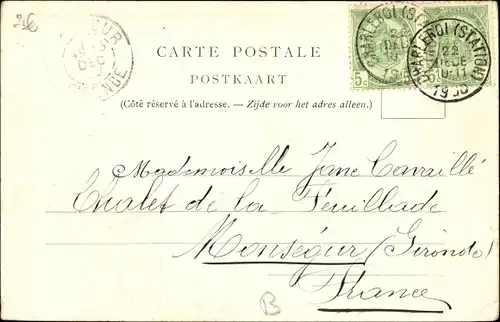 CARTE POSTALE
POSTKAART
(Côté réservé à l'adresse. – Zijde voor het adres alleen.)
CHARLEROI (STATION)
22
10-11
Mademoiselle Jane Cavaillé
Chalet de la Feuillade
Monségur (Gironde)
France
B